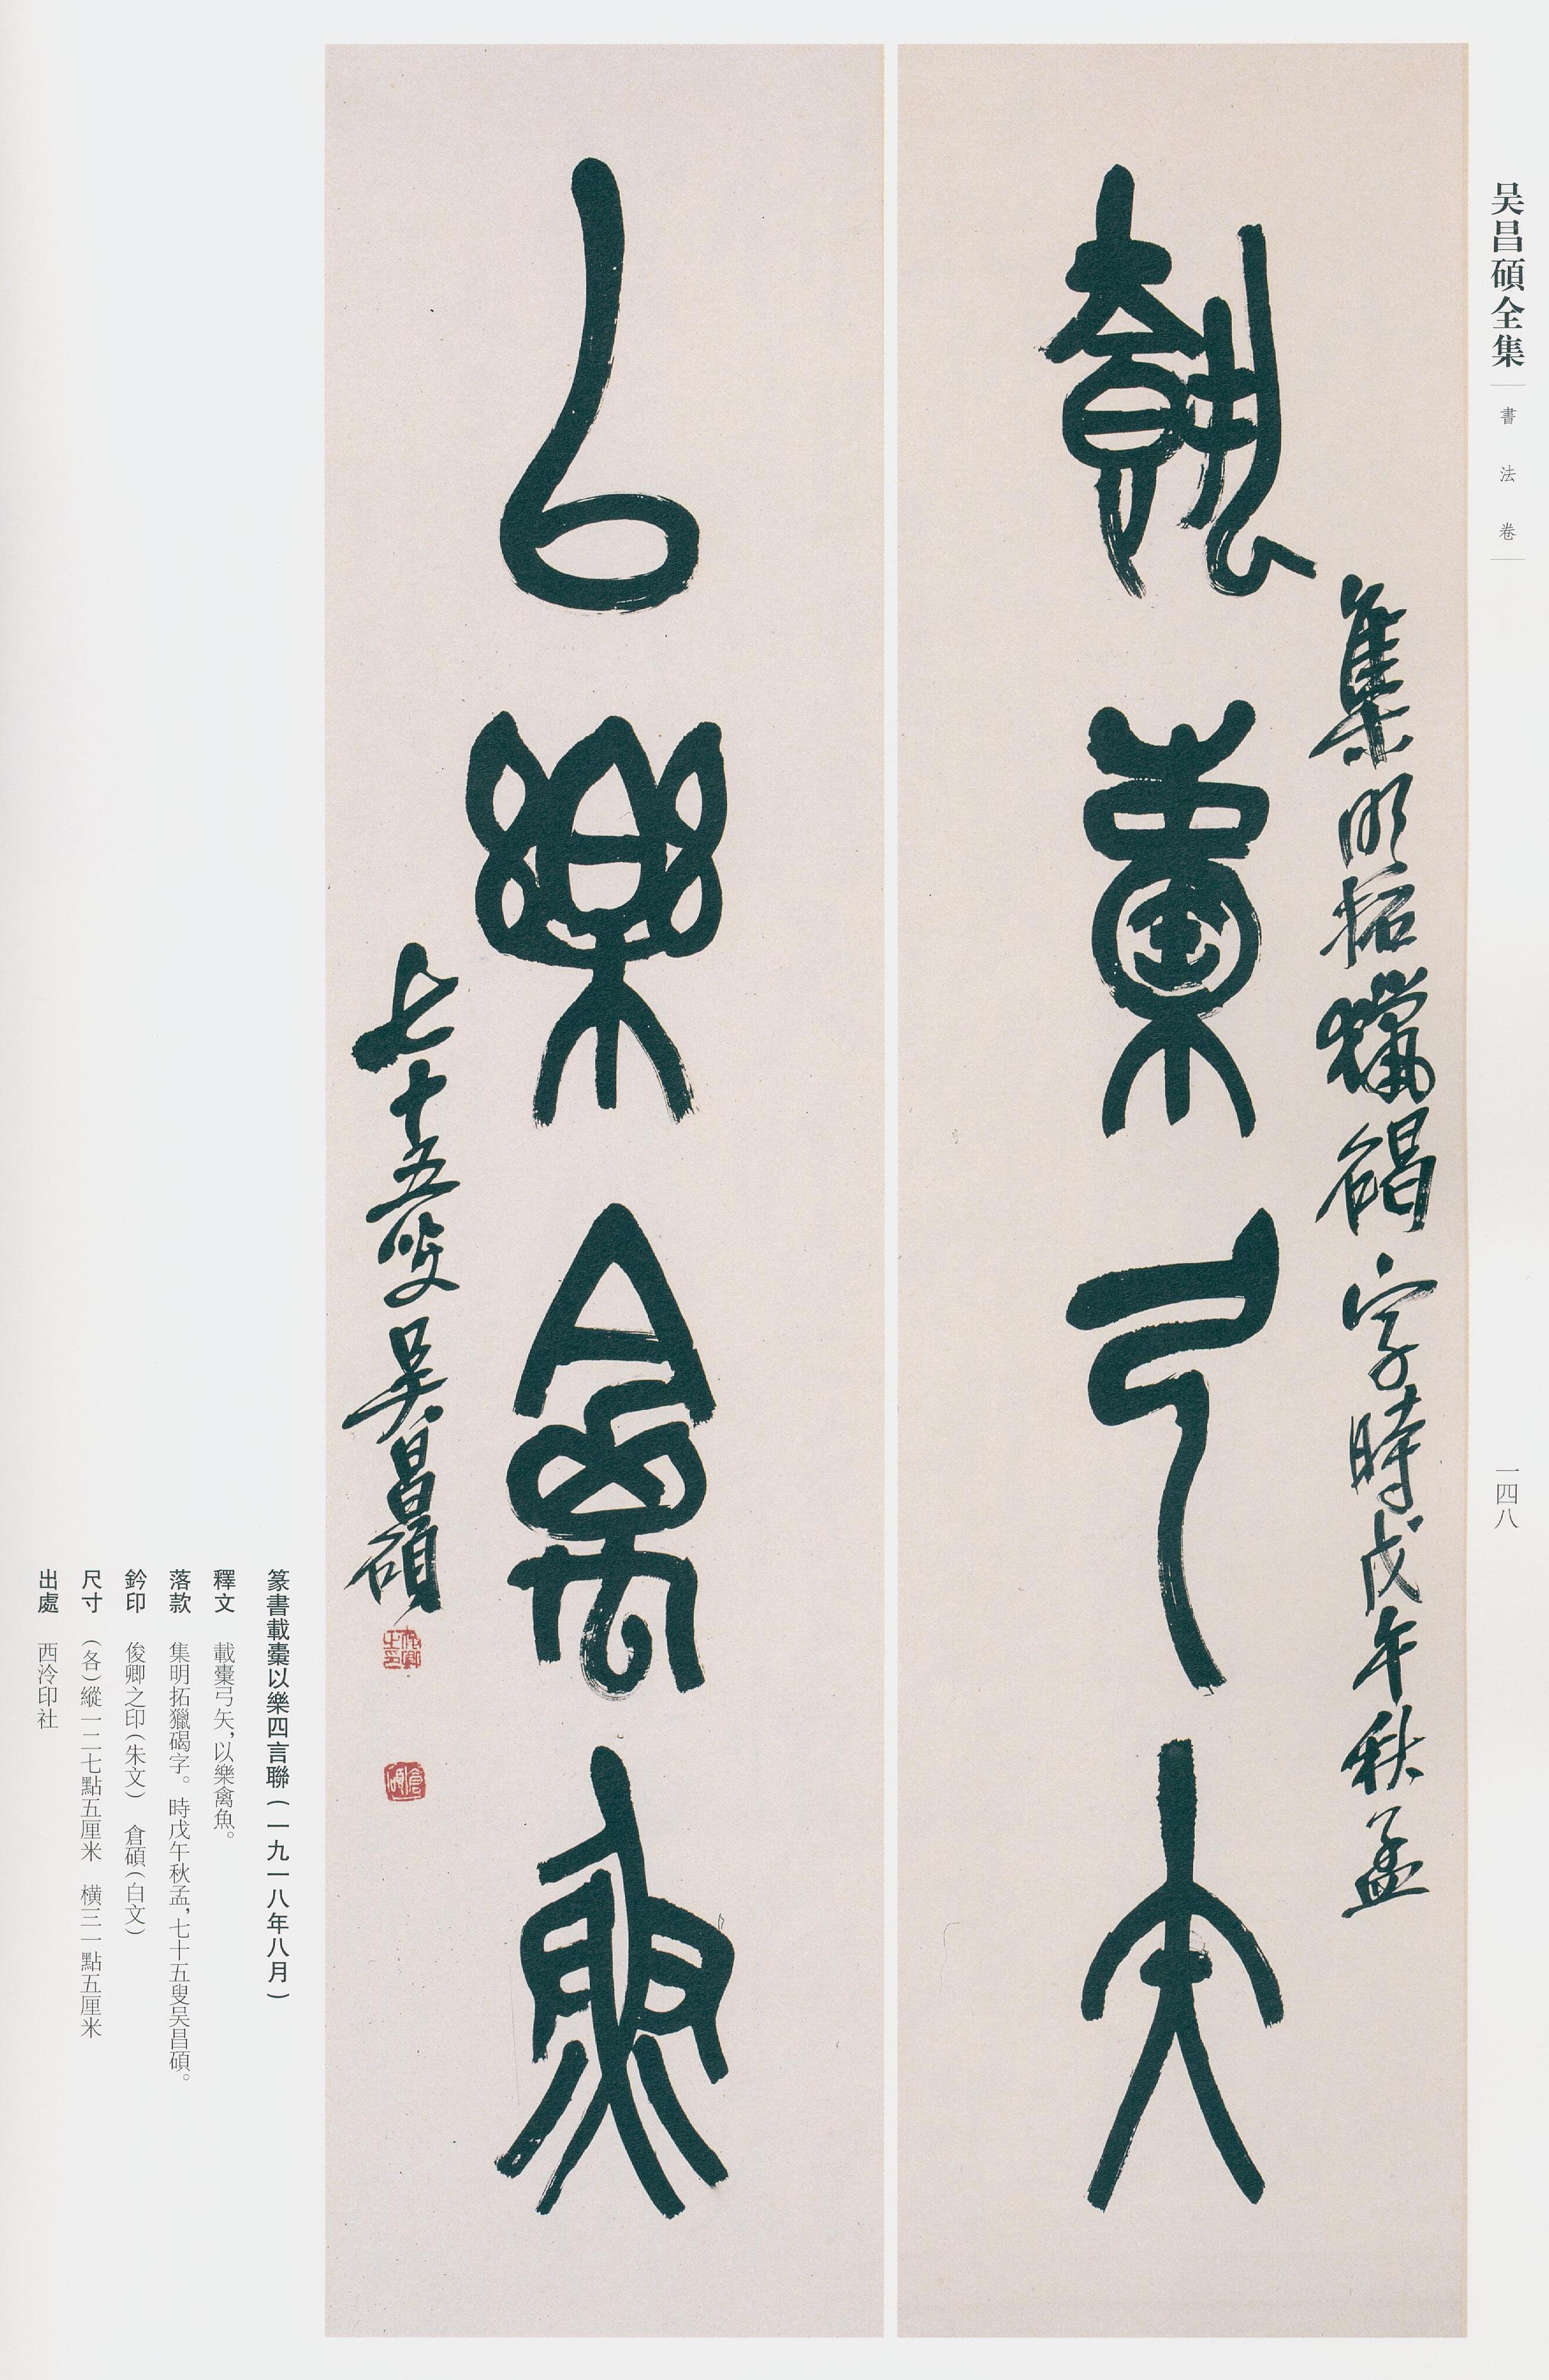 吴昌碩全集
書法卷
一四八
集明拓獵碣字時戊午秋孟
載橐弓矢
以樂禽魚
七十五叟吴昌碩
俊卿之印
倉碩
篆書載橐以樂四言聯(一九一八年八月)
釋文 載橐弓矢,以樂禽魚。
落款 集明拓獵碣字。時戊午秋孟,七十五叟吴昌碩。
鈐印 俊卿之印(朱文) 倉碩(白文)
尺寸 (各)縱一二七點五厘米 橫三一點五厘米
出處 西泠印社